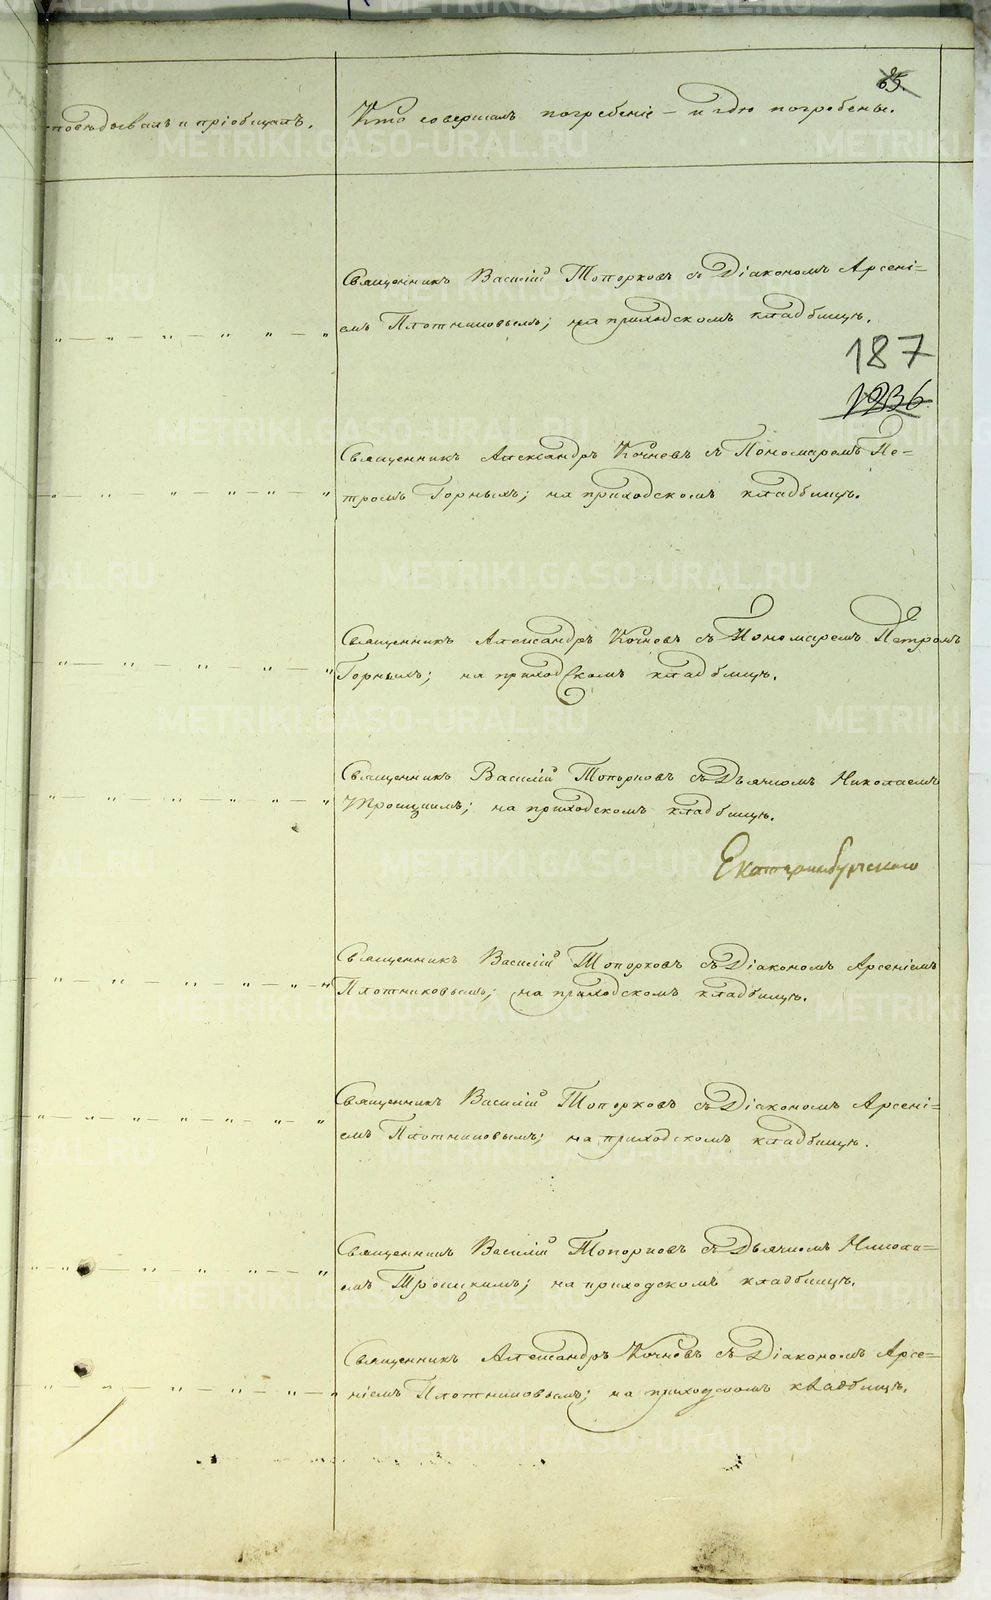 85.
-повѣдывалъ и пріобщалъ.
Кто совершалъ погребеніе – и гдѣ погребены.
Священникъ Василій Топорковъ съ Діакономъ Арсені=
емъ Плотниковымъ; на приходскомъ кладбищѣ.
187
1236
Священникъ Александръ Кочневъ съ Пономаремъ Пе-
тромъ Горныхъ; на приходскомъ кладбищѣ.
Священникъ Александръ Кочневъ съ Пономаремъ Петромъ
Горныхъ; на приходскомъ кладбищѣ.
Священникъ Василій Топорковъ съ Дьячкомъ Николаемъ
Троицкимъ; на приходскомъ кладбищѣ.
Екатеринбургскаго
Священникъ Василій Топорковъ съ Діакономъ Арсеніемъ
Плотниковымъ; на приходскомъ кладбищѣ.
Священникъ Василій Топорковъ съ Діакономъ Арсені=
емъ Плотниковымъ; на приходскомъ кладбищѣ.
Священникъ Василій Топорковъ съ Дьячкомъ Никола=
емъ Троицкимъ; на приходскомъ кладбищѣ.
Священникъ Александръ Кочневъ съ Діакономъ Арсе=
ніемъ Плотниковымъ; на приходскомъ кладбищѣ.
METRIKI.GASO-URAL.RU